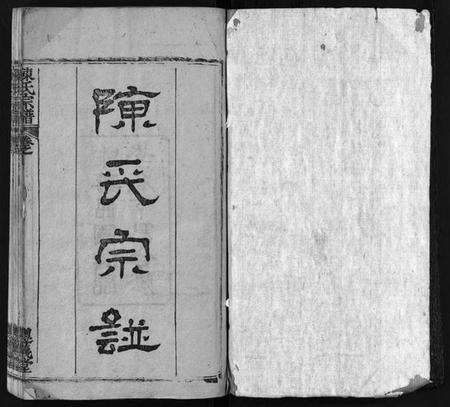 陳氏宗譜
陳氏宗譜